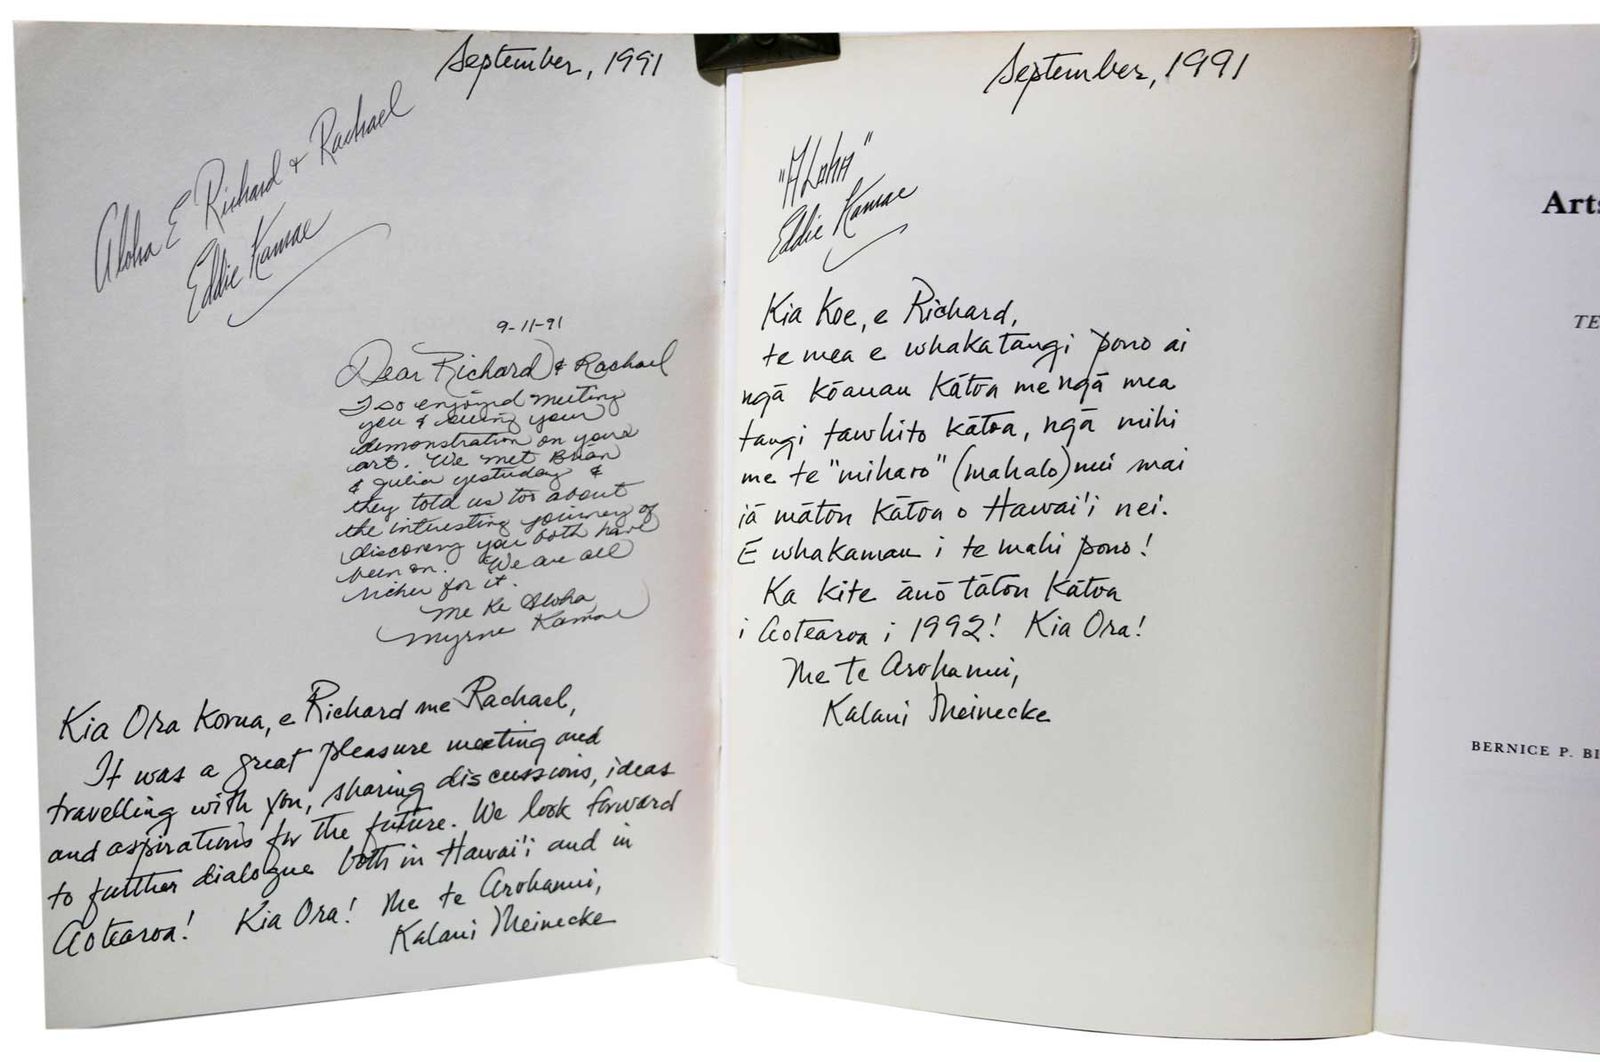 September, 1991
Aloha E Richard & Rachael
Eddie Kamae
9-11-91
Dear Richard & Rachael
I so enjoyed meeting
you & seeing your
demonstration on your
art. We met Brian
& Julia yesterday &
they told us too about
the interesting journey of
discovery you both have
been on. We are all
richer for it.
Me Ke Aloha,
Myrna Kamae
Kia Ora Korua, e Richard me Rachael,
It was a great pleasure meeting and
travelling with you, sharing discussions, ideas
and aspirations for the future. We look forward
to further dialogue both in Hawai'i and in
Aotearoa! Kia Ora! Me te Arohanui,
Kalani Meinecke
September, 1991
"ALOHA"
Eddie Kamae
Kia Koe, e Richard,
te mea e whakatangi pono ai
ngā kōauau kātoa me ngā mea
tangi tawhito kātoa, ngā mihi
me te "miharo" (mahalo) nui mai
iā mātou kātoa o Hawai'i nei.
E whakamau i te mahi pono!
Ka kite ānō tātou kātoa
i Aotearoa i 1992! Kia Ora!
Me te Arohanui,
Kalani Meinecke
Arts
TE
BERNICE P. BI